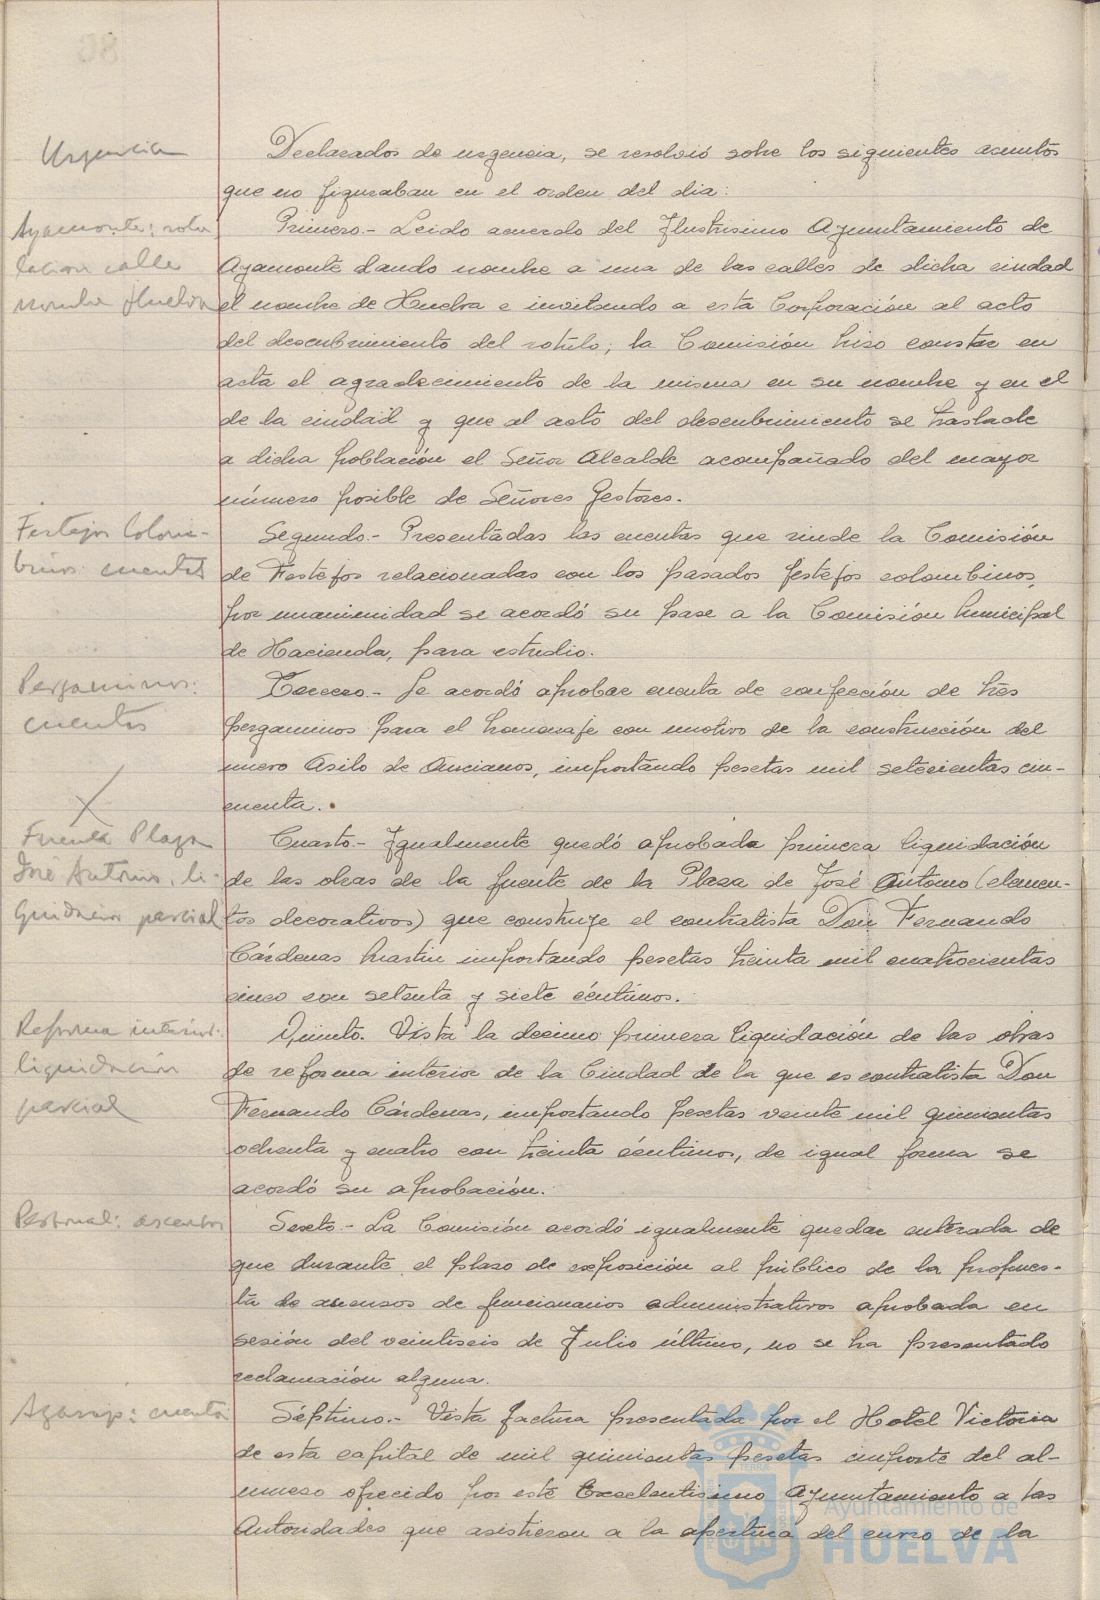 Urgencia
Declarados de urgencia, se resolvió sobre los siguientes asuntos
que no figuraban en el orden del dia:
Ayamonte: rotu
lacion calle
nombre Huelva
Primero.- Leido acuerdo del Ilustrisimo Ayuntamiento de
Ayamonte dando nombre a una de las calles de dicha ciudad
el nombre de Huelva e invitando a esta Corporación al acto
del descubrimiento del rotulo; la Comisión hizo constar en
acta el agradecimiento de la misma en su nombre y en el
de la ciudad y que al acto del descubrimiento se traslade
a dicha población el Señor Alcalde acompañado del mayor
número posible de Señores Gestores.
Festejos Colom-
binos: cuentas
Segundo.- Presentadas las cuentas que rinde la Comisión
de Festejos relacionadas con los pasados festejos colombinos,
por unanimidad se acordó su pase a la Comisión Municipal
de Hacienda, para estudio.
Pergaminos:
cuentas
Tercero.- Se acordó aprobar cuenta de confección de tres
pergaminos para el homenaje con motivo de la construcción del
nuevo Asilo de Ancianos, importando pesetas mil setecientas cin-
cuenta.
X
Fuente Plaza
José Antonio, li-
quidación parcial
Cuarto.- Igualmente quedó aprobada primera liquidación
de las obras de la fuente de la Plaza de José Antonio (elemen-
tos decorativos) que construye el contratista Don Fernando
Cárdenas Martin importando pesetas treinta mil cuatrocientas
cinco con setenta y siete céntimos.
Reforma interior:
liquidación
parcial
Quinto. Vista la decimo primera liquidación de las obras
de reforma interior de la Ciudad de la que es contratista Don
Fernando Cárdenas, importando pesetas veinte mil quinientas
ochenta y cuatro con treinta céntimos, de igual forma se
acordó su aprobación.
Personal: ascensos
Sexto.- La Comisión acordó igualmente quedar enterada de
que durante el plazo de exposición al público de la propues-
ta de ascensos de funcionarios administrativos aprobada en
sesión del veintiseis de Julio último, no se ha presentado
reclamación alguna.
Agasajo: cuenta
Séptimo.- Vista factura presentada por el Hotel Victoria
de esta capital de mil quinientas pesetas importe del al-
muerzo ofrecido por este Excelentisimo Ayuntamiento a las
Autoridades que asistieron a la apertura del curso de la
Ayuntamiento de
HUELVA